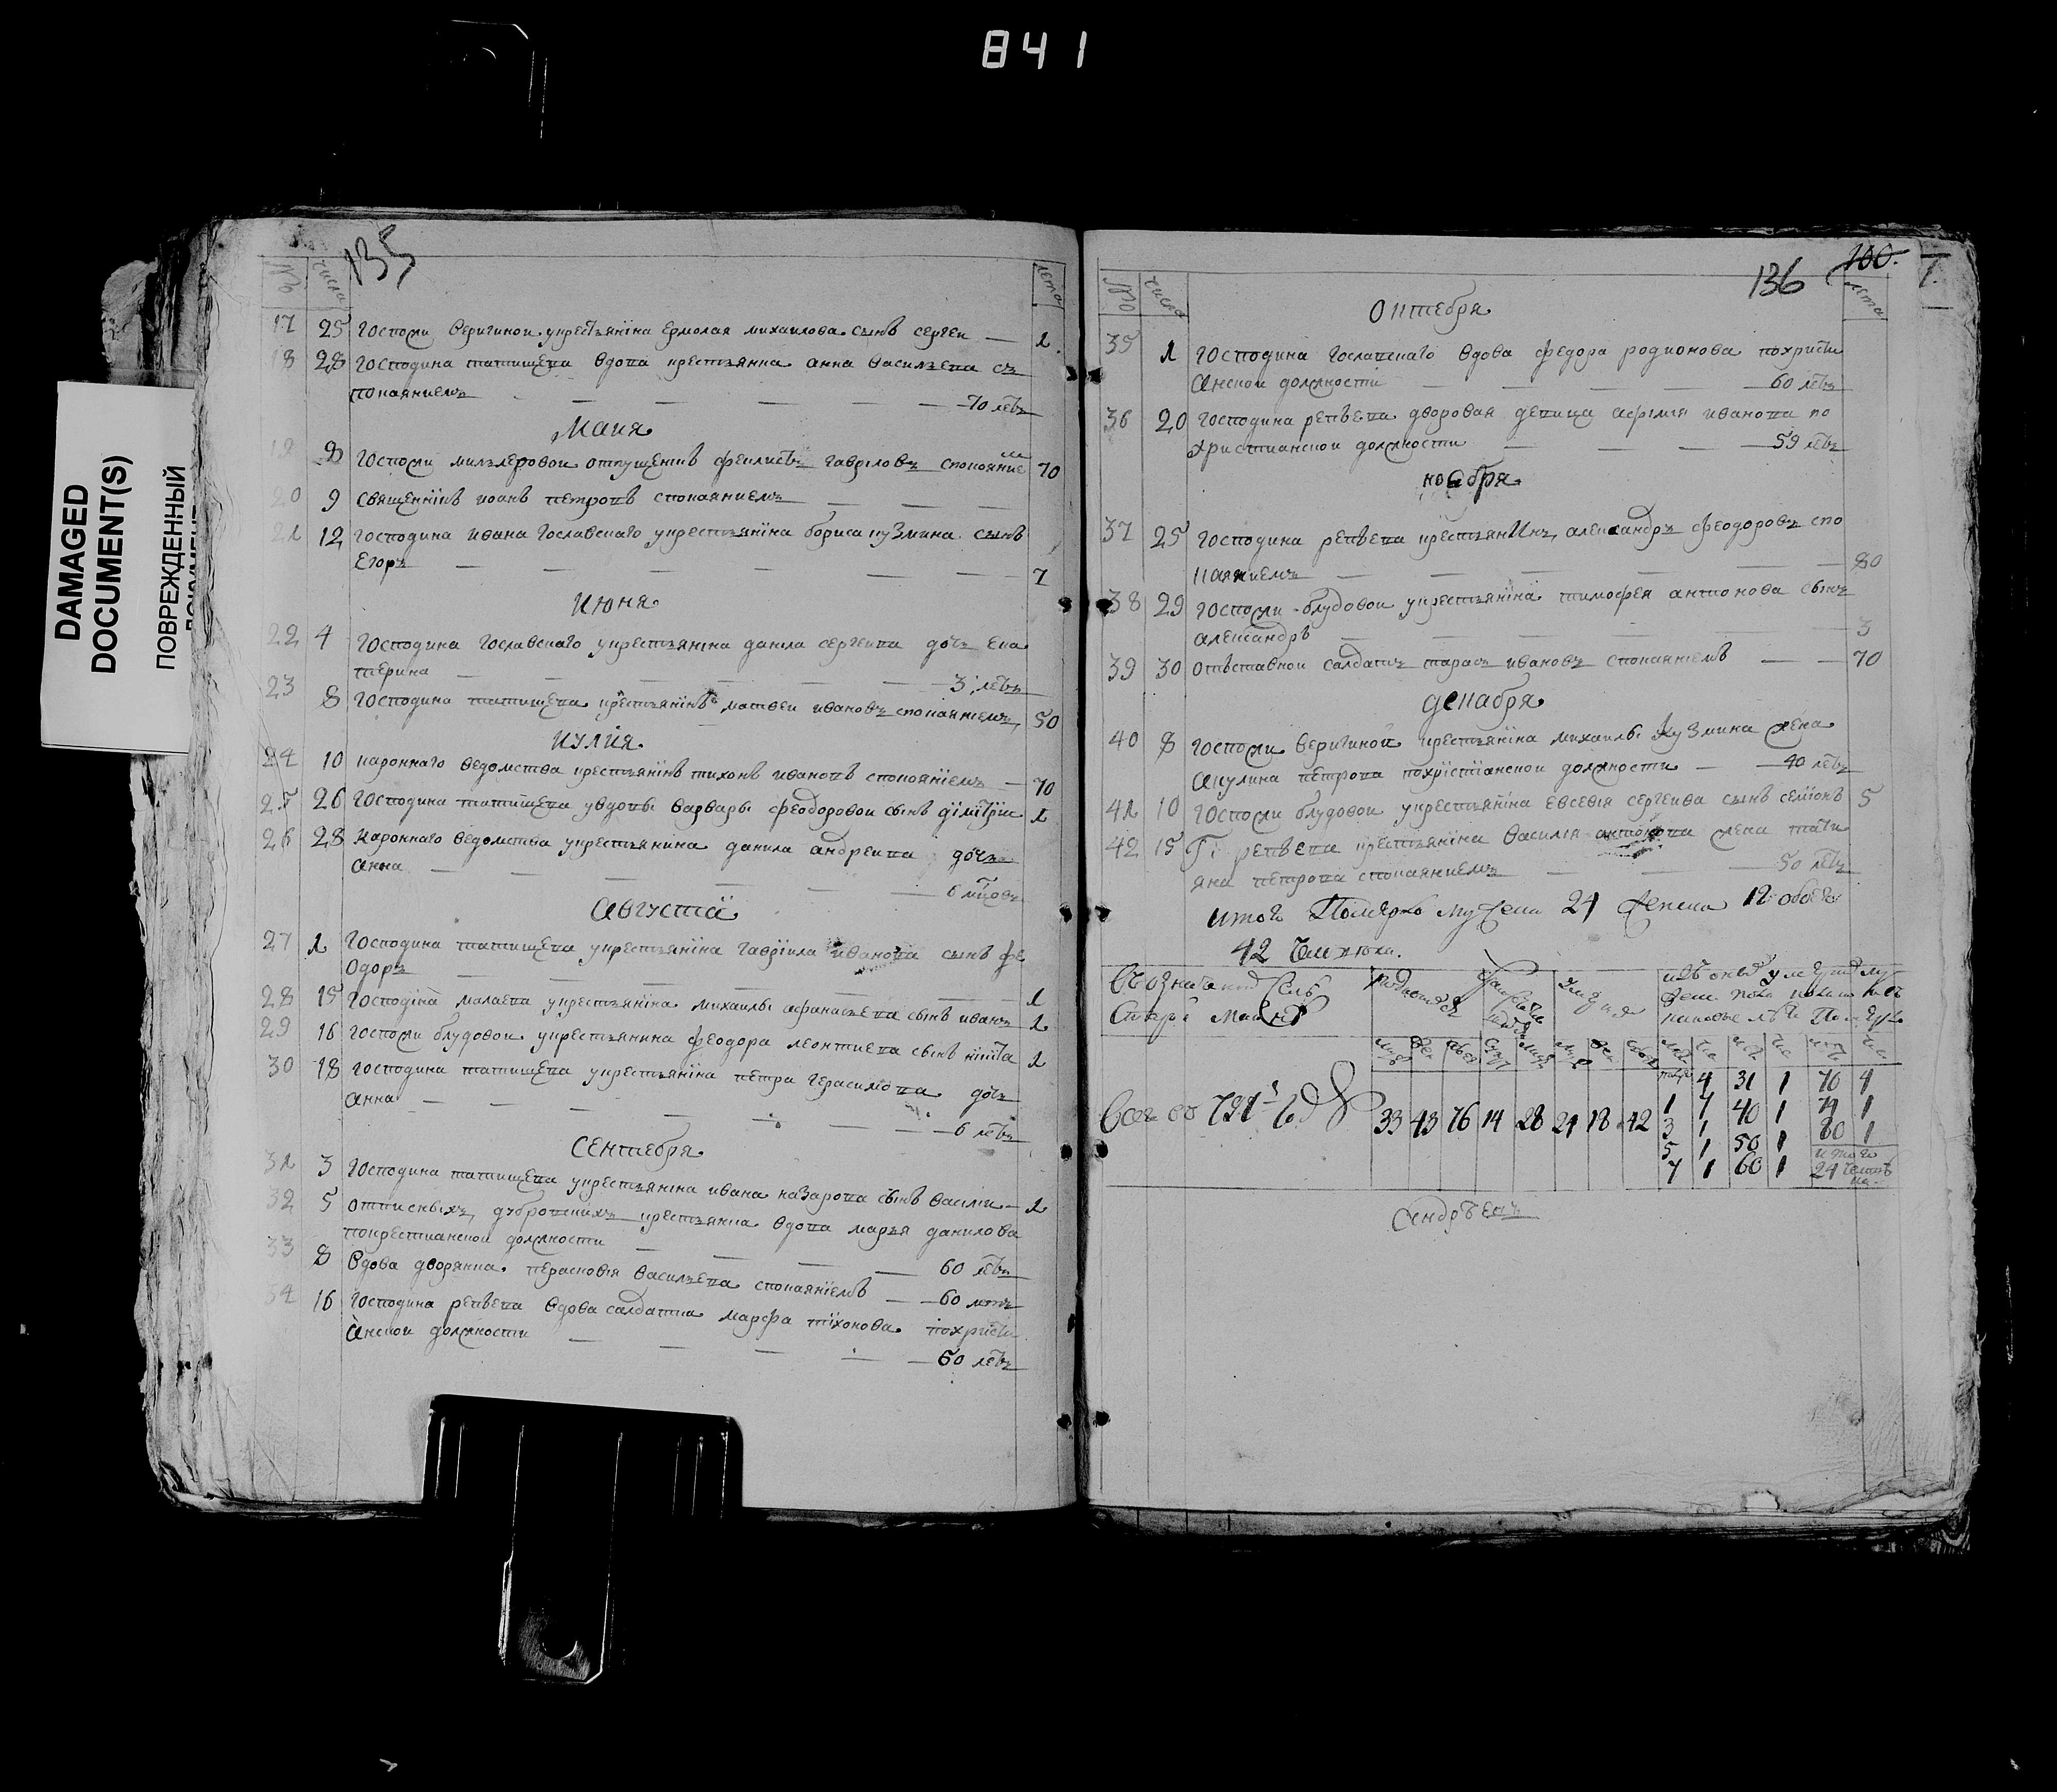 841
DAMAGED
DOCUMENT(S)
ПОВРЕЖДЕННЫЙ
135
№ числа лета
17 25 Госпожи Веригиной у крестьянїна Ермолая михаилова сынъ сергеи — 1
18 28 Господина татищева вдова крестьянка анна васильева съ
покаяниемъ — — — — — 70 летъ
Маия
19 8 Госпожи отпущеникъ гавриловъ 70
20 9 Священнїкъ иоанъ петровъ спокаяниемъ — — —
21 12 господина ивана Гославскаго у крестьянїна бориса кузмина сынъ
Егоръ — — — — — — 7
Июня
22 4 Господина Гославскаго у крестьянїна данила сергеива дочь ека
терина — — — — — 3 летъ
23 8 Господина татищева крестьянїнъ матвеи ивановъ спокаяниемъ, 50
Иулия
24 10 каронного ведомства крестьянїнъ тихонъ ивановъ спокаянїемъ — 70
25 26 Господина татищева у вдовы варвары феодоровои сынъ дїмїтрїи 1
26 28 каронного ведомства у крестьянина данила андреива дочь
анна — — — — — 6 мцовъ
Августа
27 1 Господина татищева у крестьянїна гаврїила иванова сынъ фе
одоръ — — — — — 1
28 15 Господїна малаева у крестьянїна михаилы афанасьева сынъ иванъ 1
29 16 госпожи блудовои у крестьянина феодора леонтиева сынъ нїкїта 1
30 18 господина татищева у крестьянїна петра герасимова дочь
анна — — — — — 6 летъ
Сентебря
31 3 Господина татищева у крестьянїна ивана назарова сынъ васїли — 1
32 5 отписныхъ, крестьянка вдова марья данилова
покрестианскои должности — — — 60 летъ
33 8 Вдова дворянка перасковїя васильева спокаянїемъ — 60 летъ
34 16 Господина репьева вдова салдатка марфа тїхонова похристи
анскои должности — — — — 60 летъ
136 100. 7.
№ числа лета
Октебря
35 1 господина Гославскаго вдова федора родионова похристи
анскои должности — — — — 60 летъ
36 20 господина репьева дворовая девица афимия иванова по
христианскои должности — — — 59 летъ
ноебря
37 25 Господина репьева крестьянинъ, александръ феодоровъ спо
каяниемъ — — — — — 80
38 29 госпожи блудовои у крестьянїна тимофея антонова сынъ
александръ — — — — 3
39 30 отъставнои салдатъ тарасъ ивановъ спокаянїемъ — — 70
декабря
40 8 госпожи Веригинои крестьянїна михаилы кузмина жена
акулина петрова похрїстїанскои должности — 40 летъ
41 10 Госпожи блудовои у крестьянїна евсевїя сергеива сынъ семїонъ 5
42 15 Г: репьева крестьянїна василїя антонова жена тати
яна петрова спокаяниемъ — — 50 летъ
итого Померло мужеска 24 женска 18 обоего
42 человека.
изъ оныхъ умершихъ му
Всего въ 791 году 33 43 76 14 28 24 18 42 4 31 1 70 4
1 7 40 1 79 1
3 1 50 1 80 1
5 1 60 1 итого
7 1 24